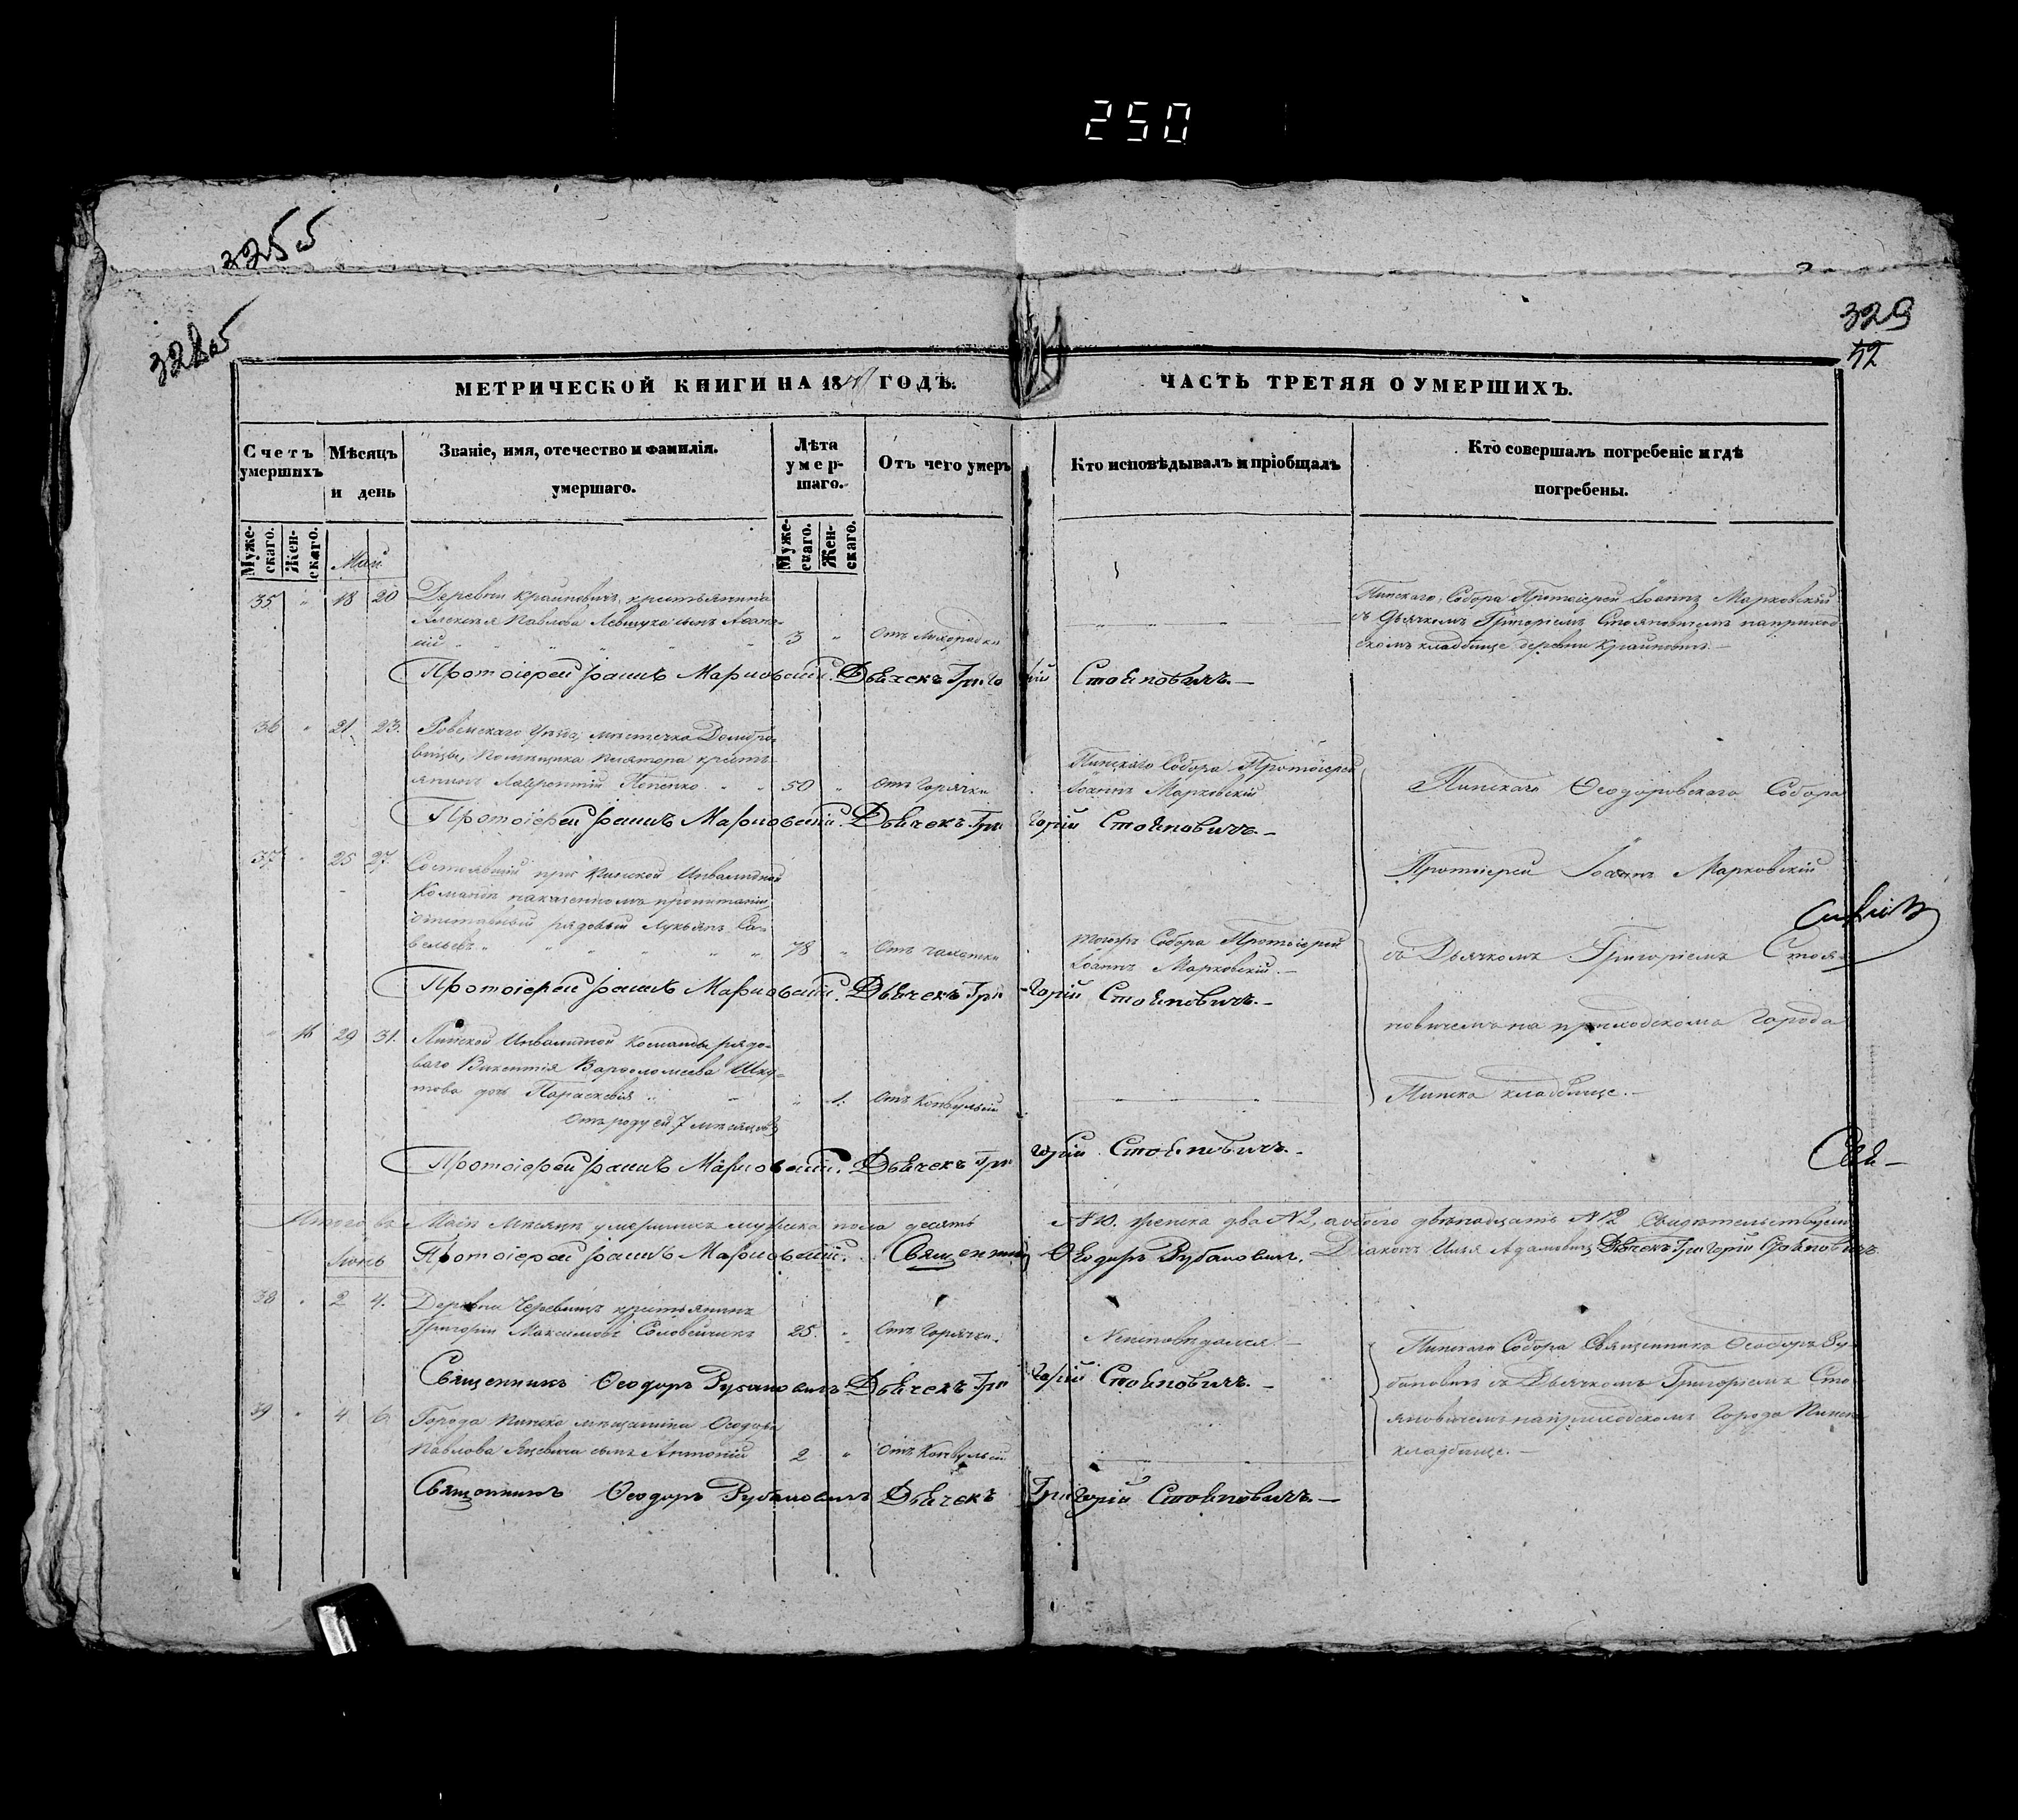 250
3255
328об
329
42
МЕТРИЧЕСКОЙ КНИГИ НА 184 ГОДЪ.
ЧАСТЬ ТРЕТЯЯ О УМЕРШИХЪ.
Счетъ умершихъ
Мѣсяцъ и день
Званіе, имя, отечество и фамилія.
умершаго.
Лѣта умершаго.
Отъ чего умеръ
Кто исповѣдывалъ и пріобщалъ
Кто совершалъ погребеніе и гдѣ
погребены.
Мужескаго.
Женскаго.
Мужескаго.
Женскаго.
Май
35 " 18 20 Деревни Крайновичъ, крестьянина
Алексѣя Павлова Левшука сынъ Афана-
сій 3 " Отъ Лихорадки
Пинскаго Собора Протоіерей Іоаннъ Марковскій
съ Дьячкомъ Григоріемъ Стояновичемъ на приход
скомъ кладбище деревни Крайновичъ.—
Протоіерей Іоаннъ Марковскій. Дьячекъ Григорій Стояновичъ.—
36 " 21 23. Ровенскаго Уѣзда, мѣстечка Домбро-
вицы, Помѣщика Плятера кресть-
янинъ Лаврентій 50 " Отъ Горячки
Пинскаго Собора Протоіерей
Іоаннъ Марковскій
Протоіерей Іоаннъ Марковскій. Дьячекъ Григорій Стояновичъ.—
37 " 25 27. Состоявшій при Пинской Инвалидной
Командѣ на казенномъ пропитаніи,
отставный рядовый Лукьянъ Са-
вельевъ 78 " Отъ чахотки
тогожъ Собора Протоіерей
Іоаннъ Марковскій.—
Протоіерей Іоаннъ Марковскій. Дьячекъ Григорій Стояновичъ.—
" 16 29 31. Пинской Инвалидной Команды рядо-
ваго Викентія Варфоломеева Шку-
това дочь Параскевія " 1. Отъ Конвульсій
Отъ роду ей 7 мѣсяцовъ
Протоіерей Іоаннъ Марковскій. Дьячекъ Григорій Стояновичъ.—
Пинскаго Ѳеодоровскаго Собора
Протоіерей Іоаннъ Марковскій
съ Дьячкомъ Григоріемъ Стоя-
новичемъ на приходскомъ города
Пинска кладбище.—
Итого въ Маіѣ Мѣсяцѣ умершихъ мужска пола десять №10. женска два №2, а обоего двѣнадцать №12 Свидѣтельствуемъ
Протоіерей Іоаннъ Марковскій. Священникъ Ѳеодоръ Рубановичъ. Діаконъ Илья Адамовичъ Дьячекъ Григорій Стояновичъ
Іюнь
38 " 2 4. Деревни Черевищъ крестьянинъ
Григорій Максимовъ Соловейчикъ 25. " Отъ Горячки.
Неисповѣдался.—
Пинскаго Собора Священникъ Ѳеодоръ Ру-
бановичъ съ Дьячкомъ Григоріемъ Сто-
яновичемъ на приходскомъ города Пинска
кладбище.—
Священникъ Ѳеодоръ Рубановичъ Дьячекъ Григорій Стояновичъ.—
39 " 4 6. Города Пинска мѣщанина Ѳеодора
Павлова Яцевича сынъ Антоній 2 " Отъ Конвульсій
Священникъ Ѳеодоръ Рубановичъ Дьячекъ Григорій Стояновичъ.—